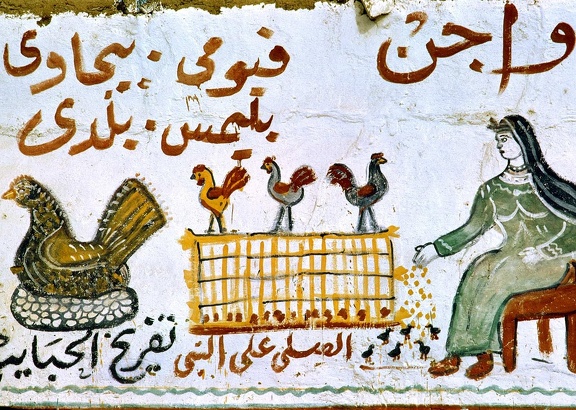 واجن
فيومى . بيجاوى
بليمس . بلدى
الصلى على النبى
تفريخ الحبايب